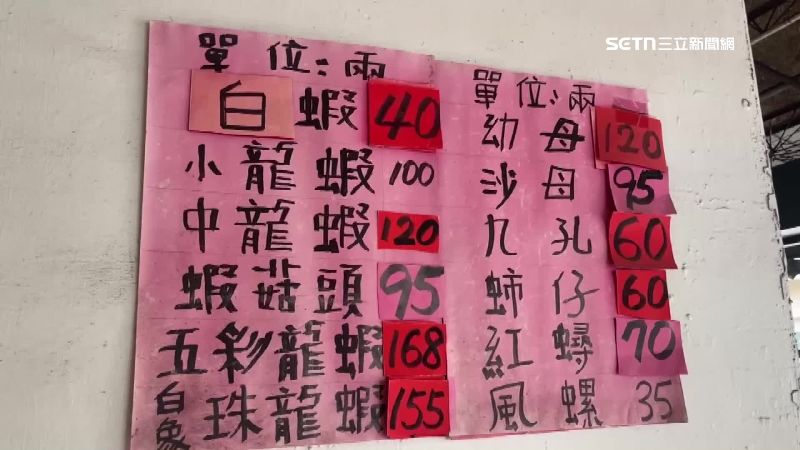 SETN三立新聞網
單位：兩
白蝦 40
小龍蝦 100
中龍蝦 120
蝦菇頭 95
五彩龍蝦 168
珠龍蝦 155
白象
單位：兩
幼母 120
沙母 95
九孔 60
蚵仔 60
紅蟳 70
風螺 35